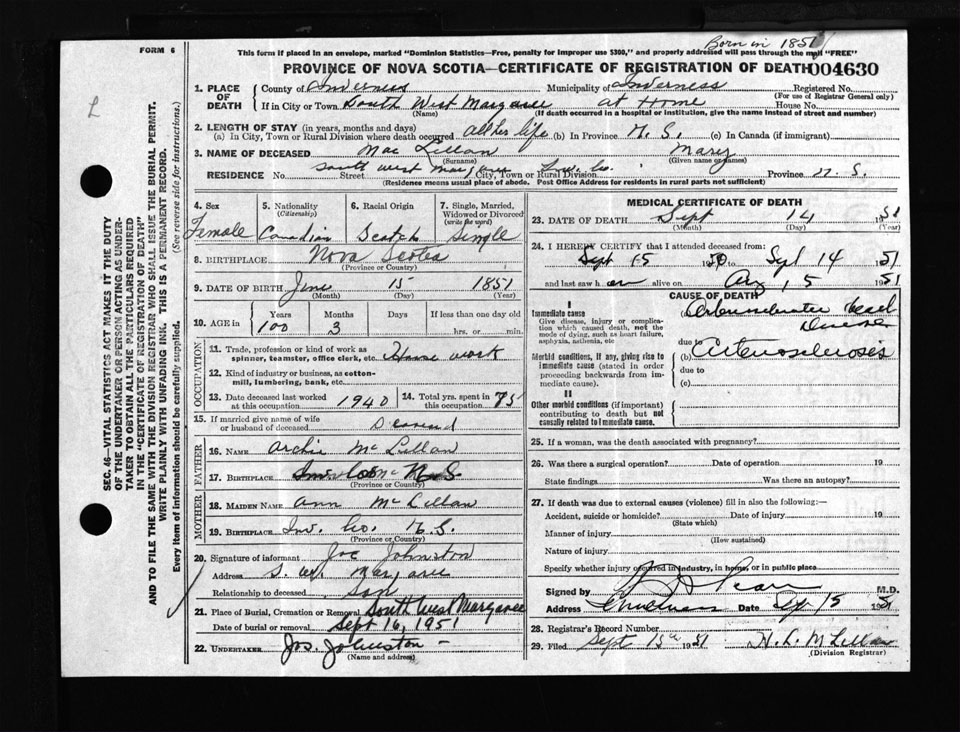 Born in 1851
FORM 6
This form if placed in an envelope, marked "Dominion Statistics—Free, penalty for improper use $300," and properly addressed will pass through the mail "FREE"
PROVINCE OF NOVA SCOTIA—CERTIFICATE OF REGISTRATION OF DEATH 004630
L
SEC. 46—VITAL STATISTICS ACT MAKES IT THE DUTY
OF THE UNDERTAKER OR PERSON ACTING AS UNDER-
TAKER TO OBTAIN ALL THE PARTICULARS REQUIRED
IN THE "CERTIFICATE OF REGISTRATION OF DEATH"
AND TO FILE THE SAME WITH THE DIVISION REGISTRAR WHO SHALL ISSUE THE BURIAL PERMIT.
WRITE PLAINLY WITH UNFADING INK. THIS IS A PERMANENT RECORD.
Every item of information should be carefully supplied. (See reverse side for instructions.)
1. PLACE OF DEATH
County of Inverness Municipality of Inverness Registered No.
(For use of Registrar General only)
If in City or Town South West Margaree at Home House No.
(Name) (If death occurred in a hospital or institution, give the name instead of street and number)
2. LENGTH OF STAY (in years, months and days)
(a) In City, Town or Rural Division where death occurred all her life (b) In Province N. S. (c) In Canada (if immigrant)
3. NAME OF DECEASED Mac Lellan Mary
(Surname) (Given name or names)
RESIDENCE No. South West Margaree Street Inv. Co. City, Town or Rural Division Province N. S.
(Residence means usual place of abode. Post Office Address for residents in rural parts not sufficient)
4. Sex Female
5. Nationality (Citizenship) Canadian
6. Racial Origin Scotch
7. Single, Married, Widowed or Divorced (write the word) Single
8. BIRTHPLACE Nova Scotia
(Province or Country)
9. DATE OF BIRTH June 15 1851
(Month) (Day) (Year)
10. AGE in Years 100 Months 3 Days If less than one day old hrs. or min.
OCCUPATION
11. Trade, profession or kind of work as spinner, teamster, office clerk, etc. House work
12. Kind of industry or business, as cotton-mill, lumbering, bank, etc.
13. Date deceased last worked at this occupation 1940
14. Total yrs. spent in this occupation 75
15. If married give name of wife or husband of deceased
FATHER
16. NAME Archie McLellan
17. BIRTHPLACE N S
(Province or Country)
MOTHER
18. MAIDEN NAME Ann McLellan
19. BIRTHPLACE Inv. Co. N. S.
(Province or Country)
20. Signature of informant Joe Johnston
Address S. W. Margaree
Relationship to deceased son
21. Place of Burial, Cremation or Removal South West Margaree
Date of burial or removal Sept 16, 1951
22. UNDERTAKER Jos. Johnston
(Name and address)
MEDICAL CERTIFICATE OF DEATH
23. DATE OF DEATH Sept 14 1951
(Month) (Day) (Year)
24. I HEREBY CERTIFY that I attended deceased from:
Sept 15 1950 to Sept 14 1951
and last saw her alive on Aug 15 1951
CAUSE OF DEATH
I
Immediate cause
Give disease, injury or complication which caused death, not the mode of dying, such as heart failure, asphyxia, asthenia, etc
(a) Heart Disease
due to
Morbid conditions, if any, giving rise to immediate cause (stated in order proceeding backwards from immediate cause).
(b) Arteriosclerosis
due to
(c)
II
Other morbid conditions (if important) contributing to death but not causally related to immediate cause.
25. If a woman, was the death associated with pregnancy?
26. Was there a surgical operation? Date of operation 19
State findings Was there an autopsy?
27. If death was due to external causes (violence) fill in also the following:—
Accident, suicide or homicide? Date of injury 19
(State which)
Manner of injury
(How sustained)
Nature of injury
Specify whether injury occurred in industry, in home, or in public place
Signed by M.D.
Address Inverness Date Sep 15 1951
28. Registrar's Record Number
29. Filed Sept 15th 1951 McLellan
(Division Registrar)